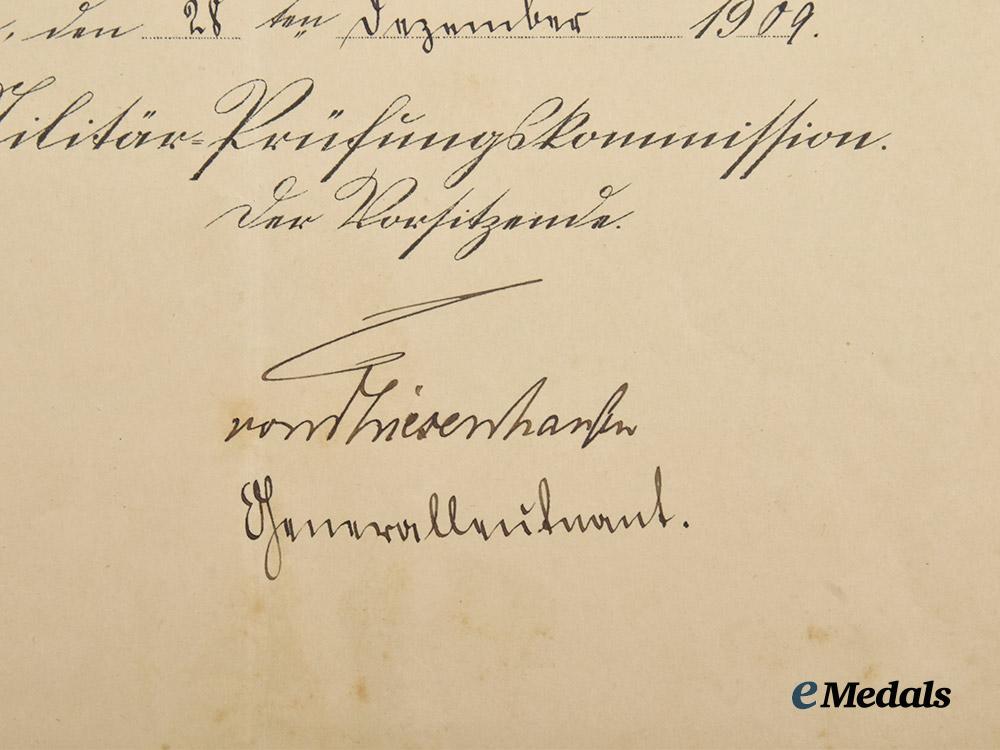 , den 28 ten Dezember 1909.
Militär-Prüfungskommission.
Der Vorsitzende.
von Thiesenhausen
Generalleutnant.
eMedals